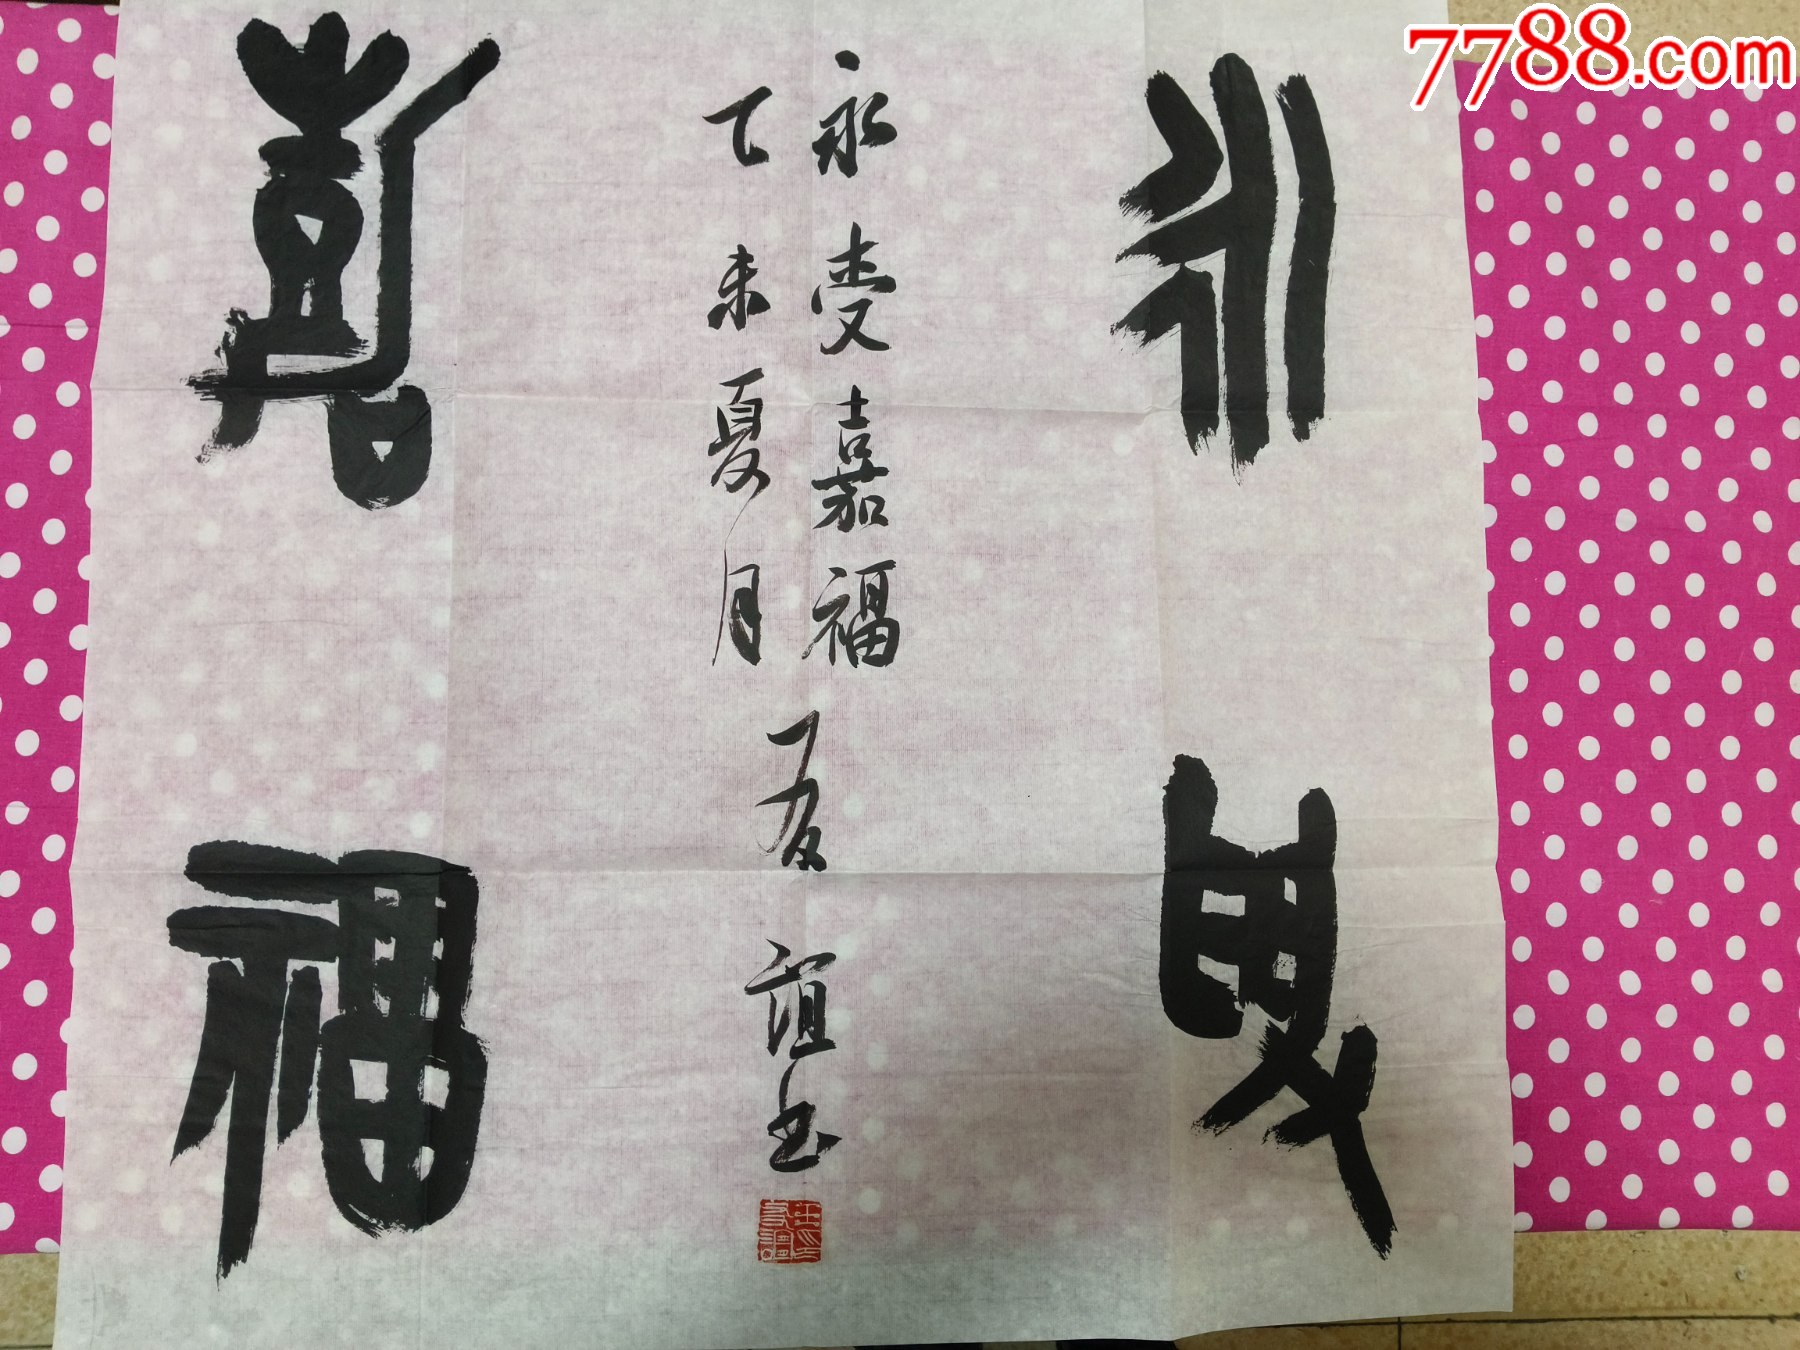 永受
嘉福
永受嘉福
丁未夏月
友谊书
7788.com